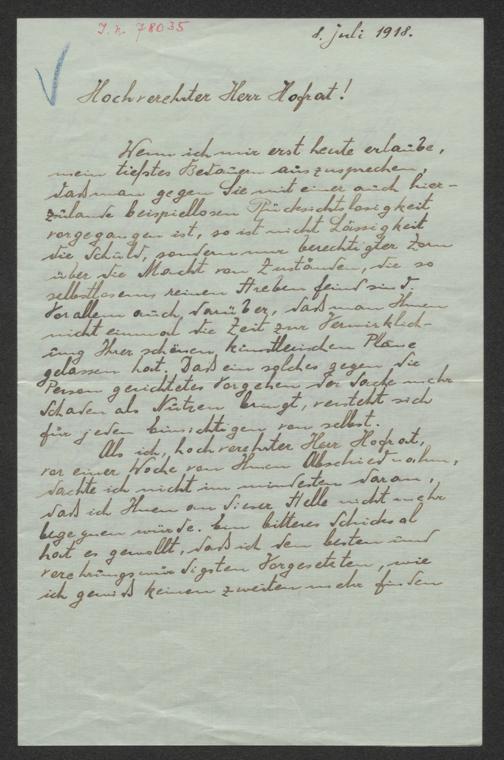 J. N. 78035
8. Juli 1918.
Hochverehrter Herr Hofrat!
Wenn ich mir erst heute erlaube,
mein tiefstes Bedauern auszusprechen,
daß man gegen Sie mit einer auch hier-
zulande beispiellosen Rücksichtslosigkeit
vorgegangen ist, so ist nicht Lässigkeit
die Schuld, sondern nur berechtigter Zorn
über die Macht von Zuständen, die so
selbstlosem reinen Streben feind sind.
Vor allem auch darüber, daß man Ihnen
nicht einmal die Zeit zur Verwirklich-
ung Ihrer schönen künstlerischen Pläne
gelassen hat. Daß ein solches gegen die
Person gerichtetes Vorgehen der Sache mehr
Schaden als Nutzen bringt, versteht sich
für jeden Einsichtigen von selbst.
Als ich, hochverehrter Herr Hofrat,
vor einer Woche von Ihnen Abschied nahm,
dachte ich nicht im mindesten daran,
daß ich Ihnen an dieser Stelle nicht mehr
begegnen würde. Ein bitteres Schicksal
hat es gewollt, daß ich den besten und
verehrungswürdigsten Vorgesetzten, wie
ich gewiß keinen zweiten mehr finden